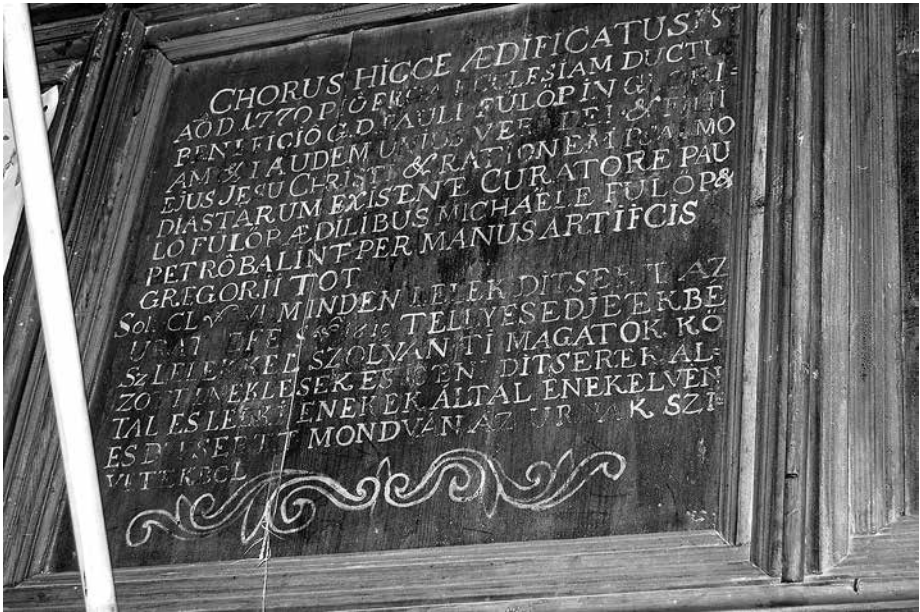 CHORUS HICCE ÆDIFICATUS EST
AÕD 1770 PIÔ ERGA ECCLESIAM DUCTUS
BENIFICIÔ G.D PAULI FÜLÖP IN GLORI-
AM & LAUDEM UNIUS VERI DEI & FILII
EJUS JESU CHRISTI & RATIONEM PSALMO
DIASTARUM EXISTENTE CURATORE PAU
LO FÜLÖP ÆDILIBUS MICHAËLE FÜLÖP &
PETRÔ BALINT PER MANUS ARTIFCIS
GREGORII TOT
MINDEN LELEK DITSERJE AZ
URAT TELLYESEDJETEK BÉ
SZ LELEKKEL SZOLVAN TI MAGATOK KÖ
ZÖTT ENEKLESEK ES DITSERETEK AL-
TAL ES LELKI ENEKEK ALTAL ENEKELVEN
ES DITSERETET MONDVAN AZ URNAK SZI-
VETEKBÖL